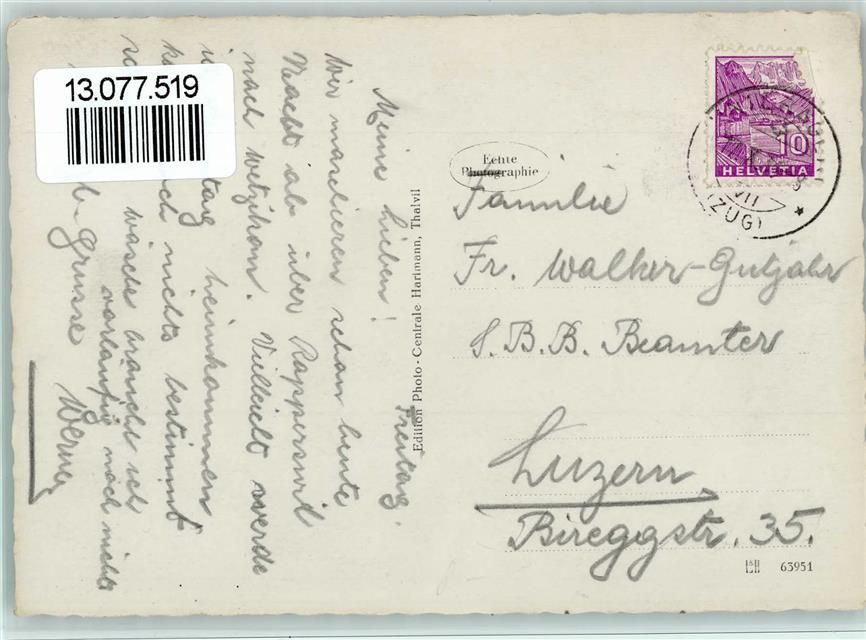 13.077.519
Freitag.
Meine Lieben!
Wir marschieren schon heute
Nacht ab über Rapperswil
nach Wetzikon. Vielleicht werde
heimkommen
nichts bestimmt
Wäsche brauche ich
vorläufig noch nichts
Grüsse Werner
Edition Photo-Centrale Hartmann, Thalwil
Echte
Photographie
HELVETIA
10
(ZUG)
VII
Familie
Fr. Walker-Gutjahr
S.B.B. Beamter
Luzern
Bireggstr. 35.
63951